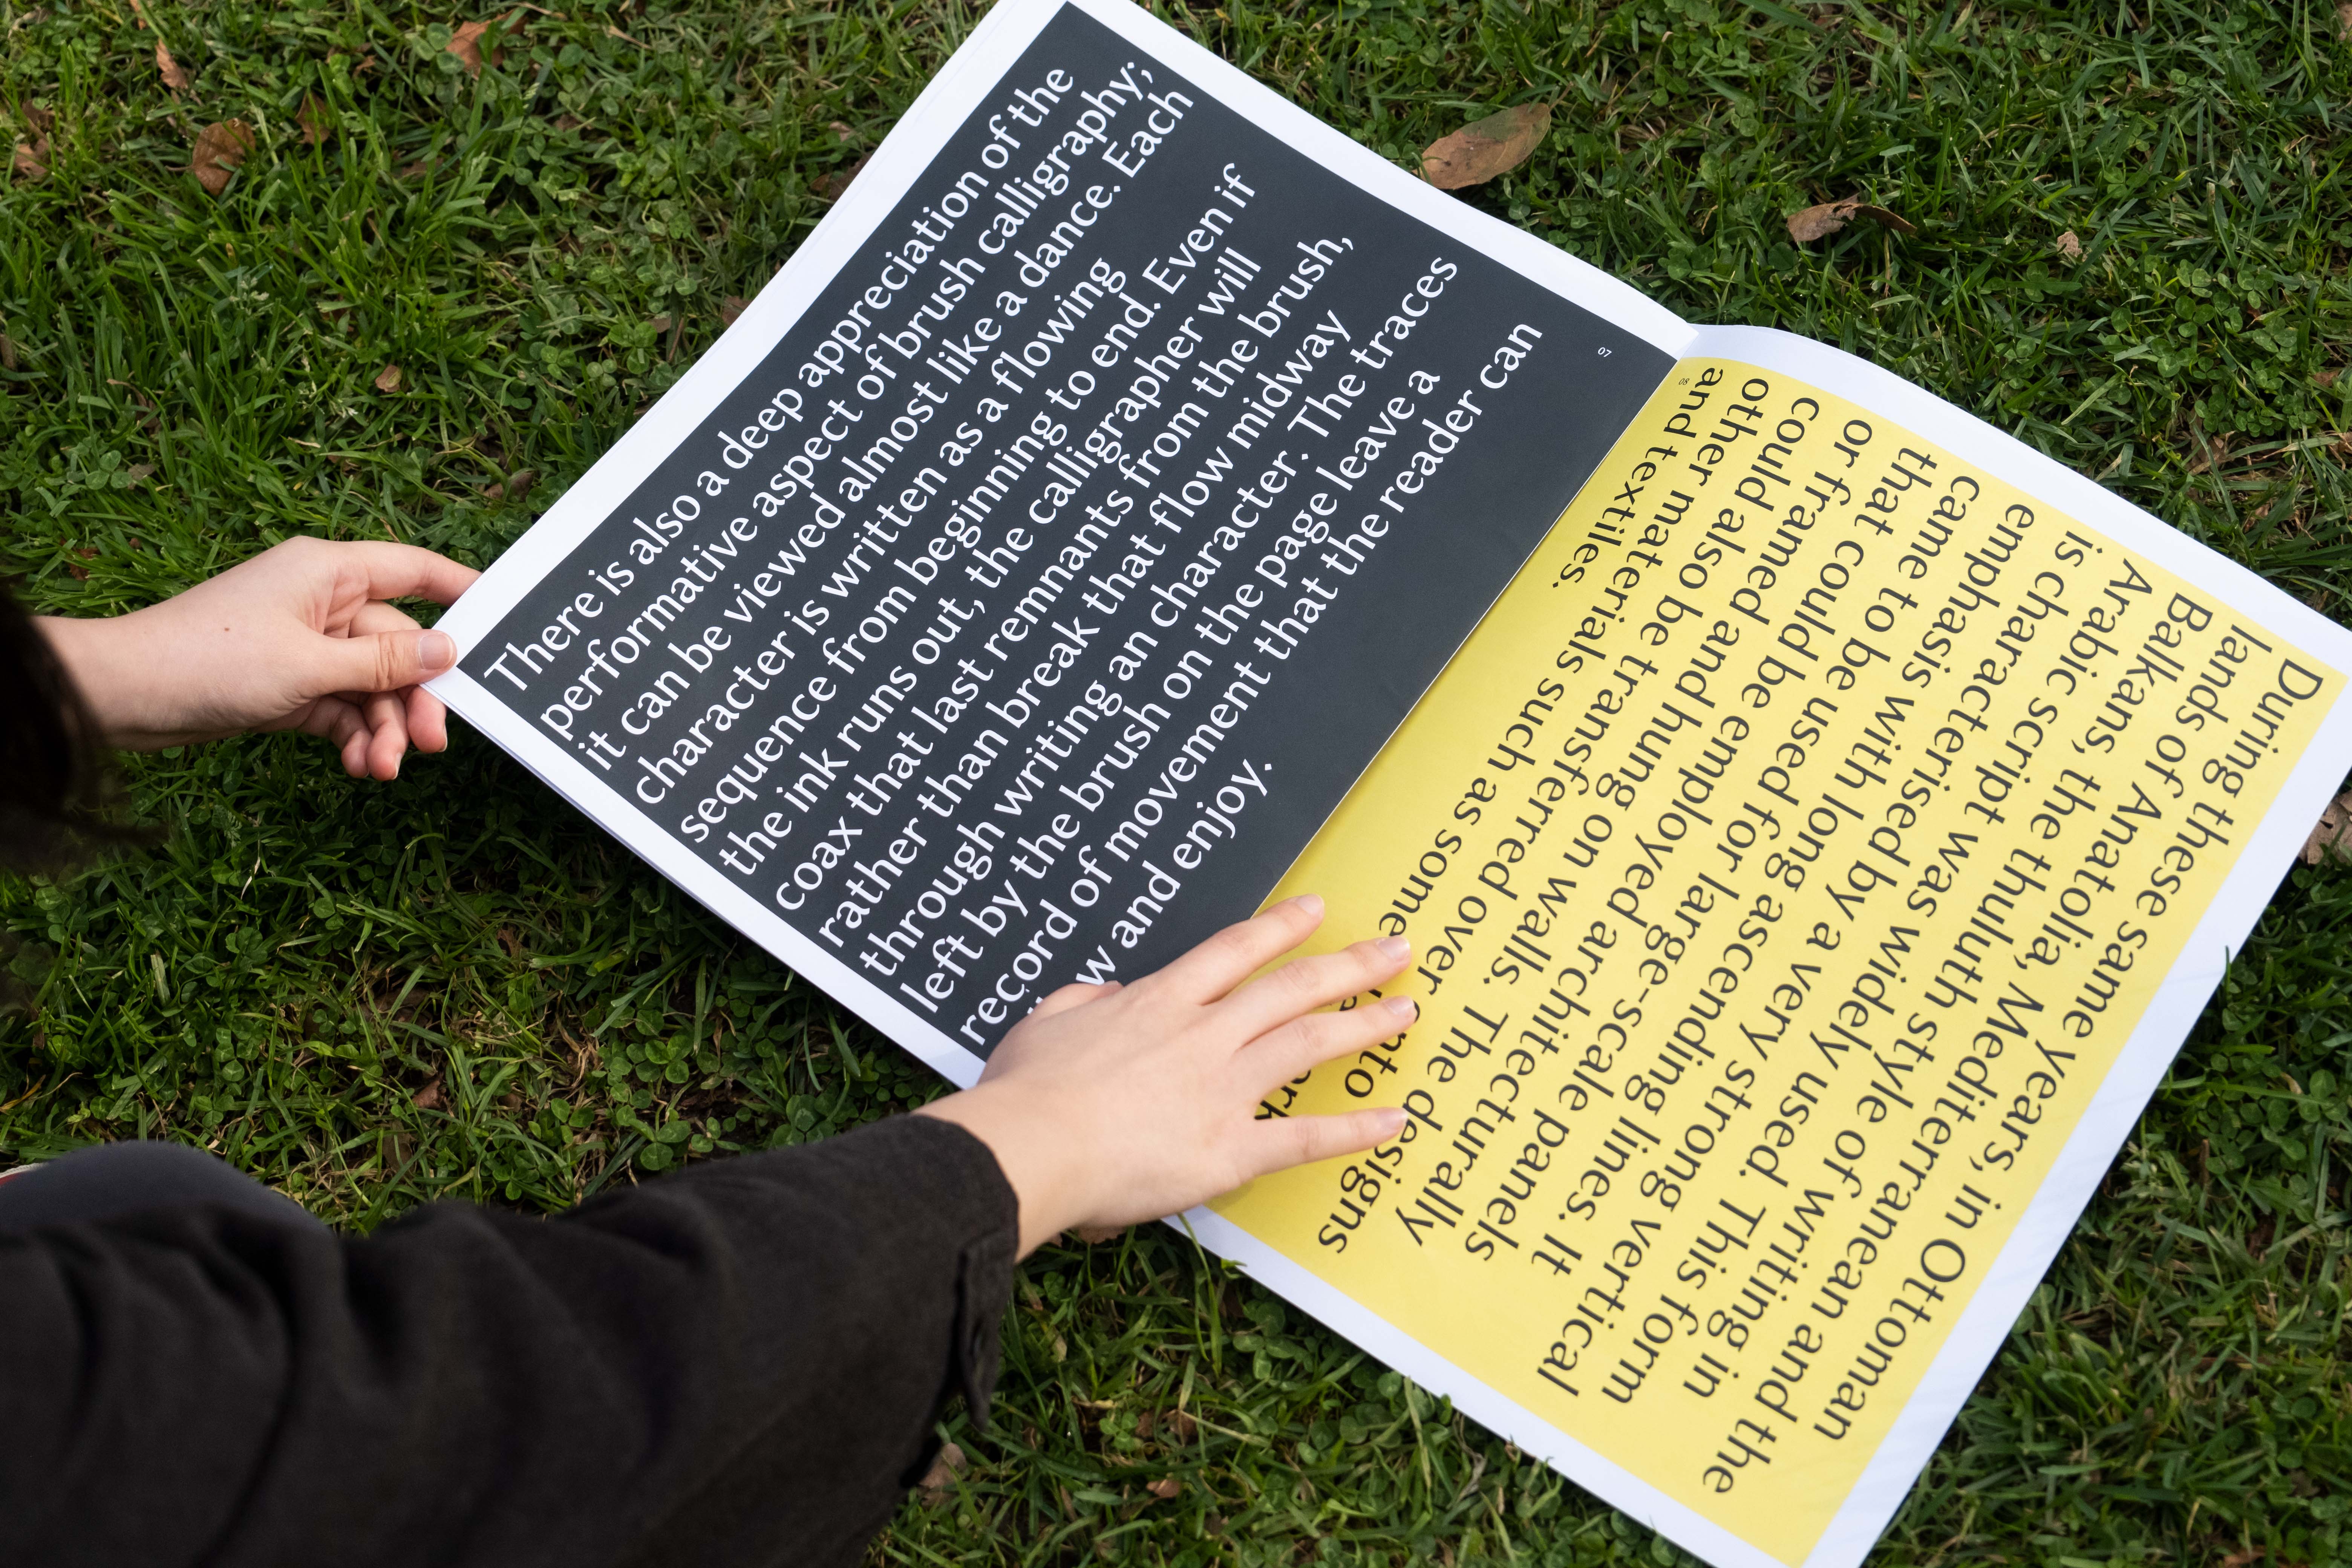 There is also a deep appreciation of the
performative aspect of brush calligraphy;
it can be viewed almost like a dance. Each
character is written as a flowing
sequence from beginning to end. Even if
the ink runs out, the calligrapher will
coax that last remnants from the brush,
rather than break that flow midway
through writing an character. The traces
left by the brush on the page leave a
record of movement that the reader can
and enjoy.
07
08
During these same years, in Ottoman
lands of Anatolia, Mediterranean and the
Balkans, the thuluth style of writing in
Arabic script was widely used. This form
is characterised by a very strong vertical
emphasis with long ascending lines. It
came to be used for large-scale panels
that could be employed architecturally
or framed and hung on walls. The designs
could also be transferred over onto
other materials such as some
and textiles.